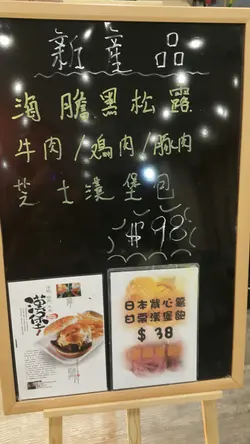 新產品
海膽黑松露
牛肉/鷄肉/豚肉
芝士漢堡包
$98
漢堡
日本戀心薯
甘栗漢堡飽
$ 38